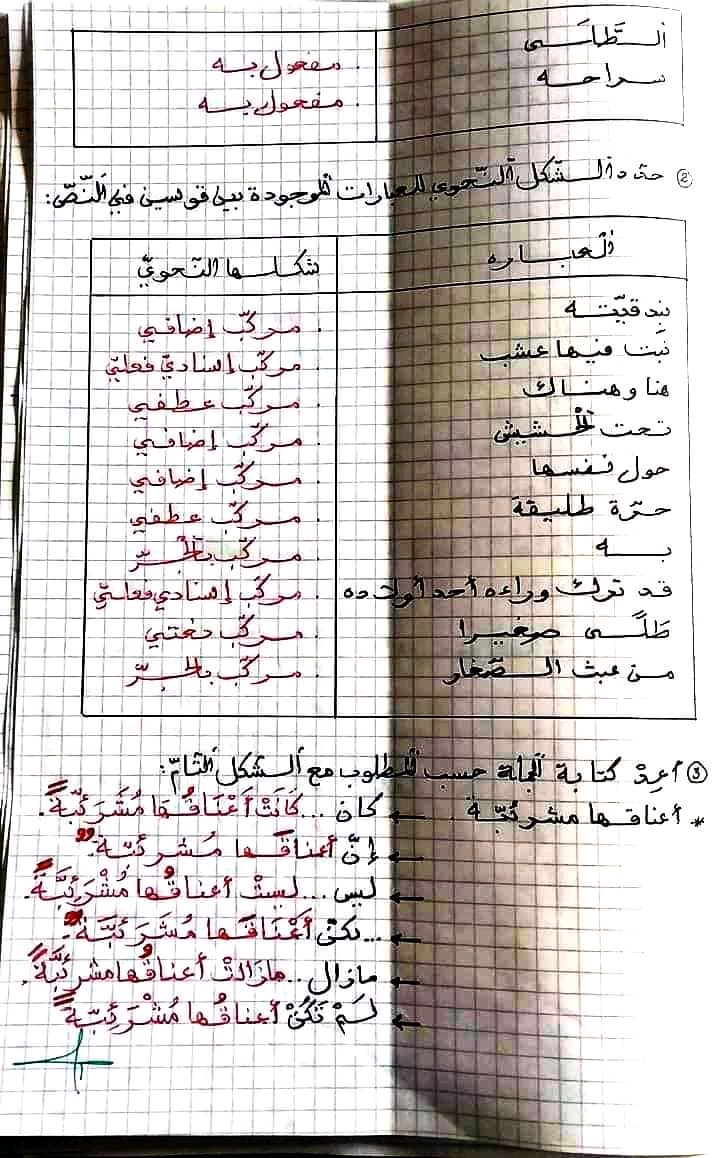 الطّلى . مفعول به
سراحه . مفعول به
② حدّد الشّكل النّحوي للعبارات الموجودة بين قوسين في النّصّ:
العباره شكلها النّحويّ
بندقيّته . مركّب إضافي
نبت فيها عشب . مركّب إسناديّ فعليّ
هنا وهناك . مركّب عطفي
تحت الحشيش . مركّب إضافي
حول نفسها . مركّب إضافي
حرّة طليقة . مركّب عطفي
به . مركّب بالجرّ
قد ترك وراءه أحد أولاده . مركّب إسنادي فعليّ
طَلًى صغيرا . مركّب نعتي
من عبث الصّغار . مركّب بالجرّ
③ أعِدْ كتابة الجملة حسب المطلوب مع الشكل التّامّ:
* أعناقها مشرئبّة. ← كان ... كَانَتْ أَعْنَاقُهَا مُشْرَئِبَّةً.
← إنّ أعناقَها مُشرئبّةٌ.
← ليس ... ليستْ أعناقُها مُشْرَئِبَّةً.
← ... لكنّ أَعْنَاقَها مُشْرَئِبَّةٌ.
← مازال .. مازالتْ أعناقُها مشرئبَّةً.
← لَمْ تَكُنْ أعناقُها مُشْرَئِبّةً